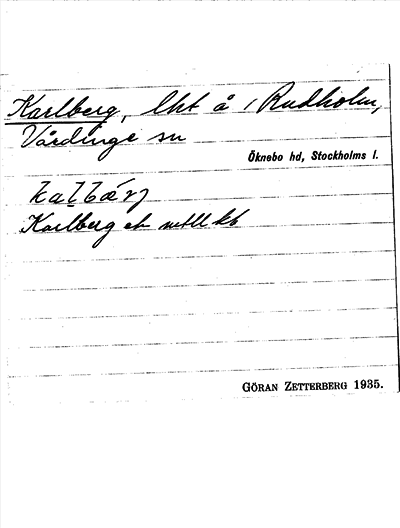 Karlberg, lht å 1 Rudholm,
Vårdinge sn
Öknebo hd, Stockholms l.
Karlberg et mtll kb
GÖRAN ZETTERBERG 1935.